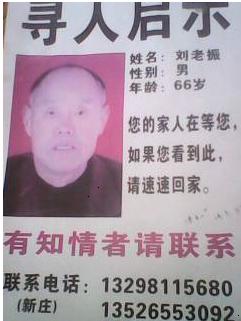 寻人启示
姓名：刘老振
性别：男
年龄：66岁
您的家人在等您，
如果您看到此，
请速速回家。
有知情者请联系
联系电话：13298115680
(新庄) 13526553092